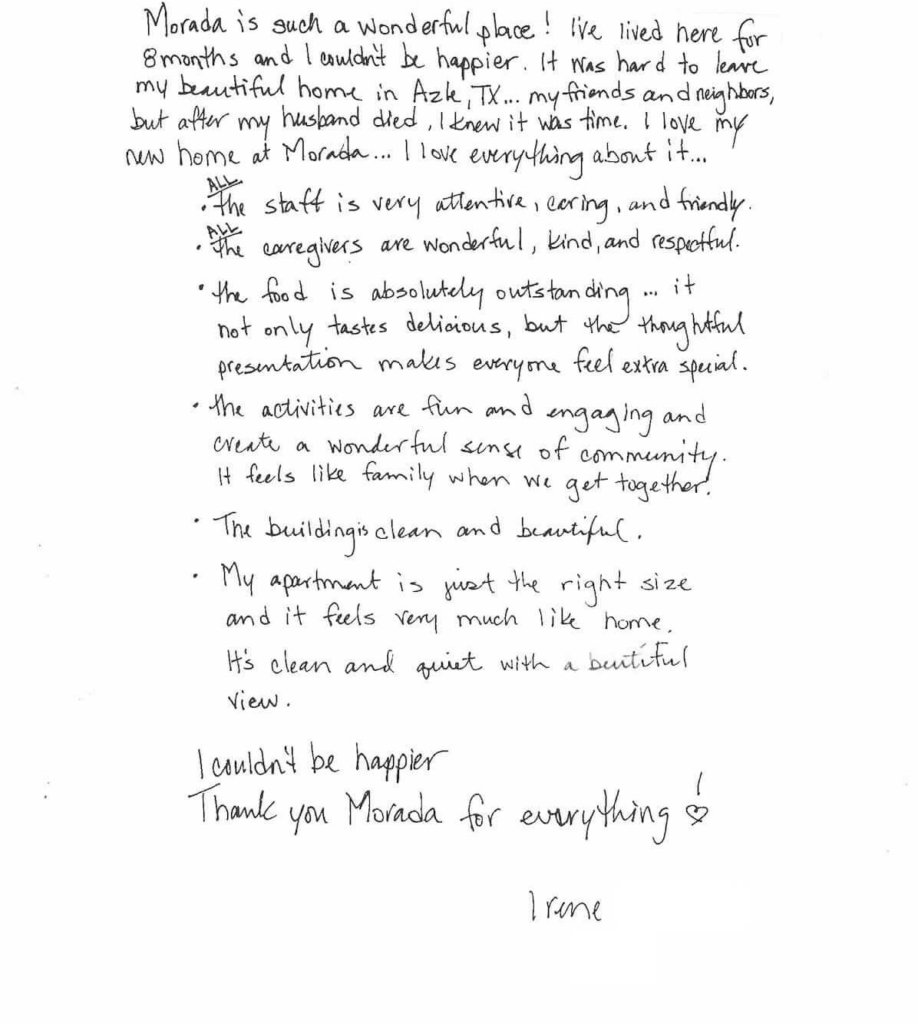 Morada is such a wonderful place! I've lived here for
8 months and I couldn't be happier. It was hard to leave
my beautiful home in Azle, TX... my friends and neighbors,
but after my husband died, I knew it was time. I love my
new home at Morada... I love everything about it...
ALL
• the staff is very attentive, caring, and friendly.
ALL
• the caregivers are wonderful, kind, and respectful.
• the food is absolutely outstanding... it
not only tastes delicious, but the thoughtful
presentation makes everyone feel extra special.
• the activities are fun and engaging and
create a wonderful sense of community.
It feels like family when we get together!
• The building is clean and beautiful.
• My apartment is just the right size
and it feels very much like home.
It's clean and quiet with a beutiful
view.
I couldn't be happier
Thank you Morada for everything!
Irene